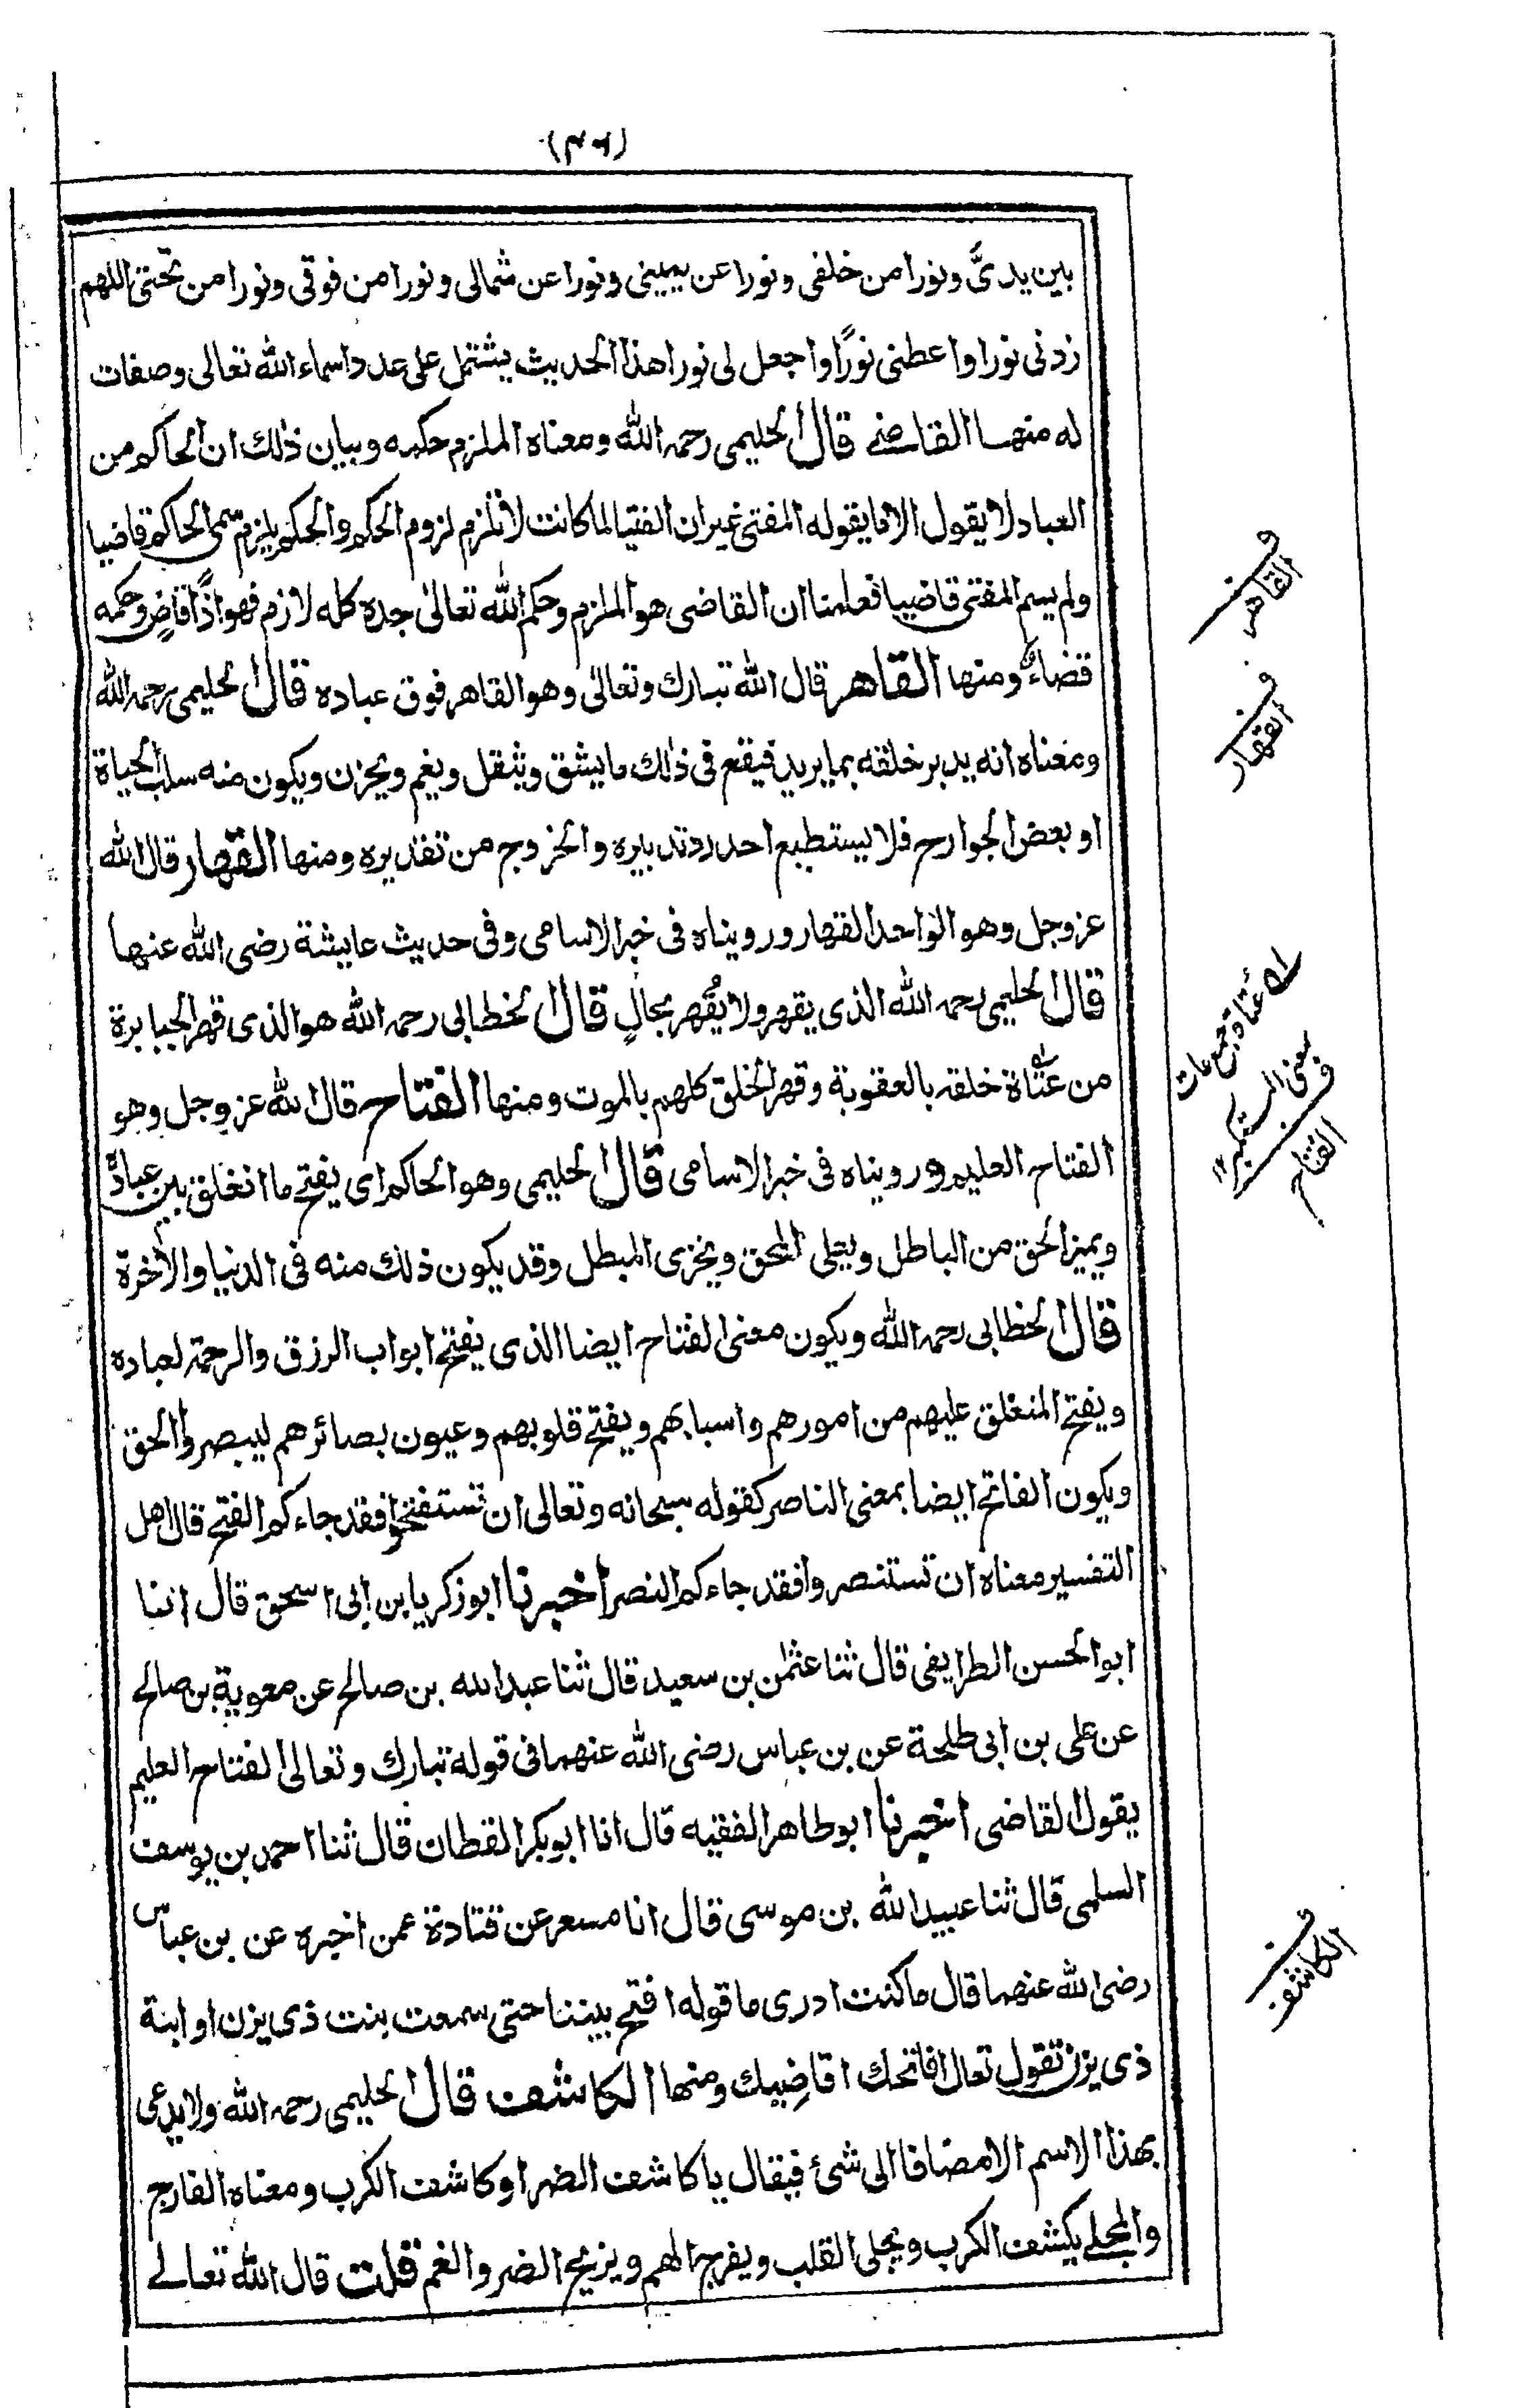 (٤٦)
بين يديَّ ونورا من خلفى ونورا عن يمينى ونورا عن شمالى ونورا من فوقى ونورا من تحتى اللهم
زدنى نورا واعطنى نورًا واجعل لى نورا هذا الحديث يشتمل على عدد اسماء الله تعالى وصفات
له منها القاضى قال الحليمى رحمه الله ومعناه الملزم حكمه وبيان ذلك ان الحاكم من
العباد لا يقول الا ما يقوله المفتى غير ان الفتيا لما كانت لا تلزم لزوم الحكم والحكم يلزم سمى الحاكم قاضيا
ولم يسم المفتى قاضيا فعلمنا ان القاضى هو الملزم وحكم الله تعالى جده كله لازم فهو اذًا قاضٍ وحكمه
قضاءٌ ومنها القاهر قال الله تبارك وتعالى وهو القاهر فوق عباده قال الحليمى رحمه الله
ومعناه انه يدبر خلقه بما يريد فيقع فى ذلك ما يشق ويثقل ويغم ويحزن ويكون منه سلب الحياة
او بعض الجوارح فلا يستطيع احد رد تدبيره والخروج من تقديره ومنها القهار قال الله
عز وجل وهو الواحد القهار ورويناه فى خبر الاسامى وفى حديث عايشة رضى الله عنها
قال الحليمى رحمه الله الذى يقهر ولا يُقهر بحالٍ قال الخطابى رحمه الله هو الذى قهر الجبابرة
من عتاة خلقه بالعقوبة وقهر الخلق كلهم بالموت ومنها الفتاح قال الله عز وجل وهو
الفتاح العليم ورويناه فى خبر الاسامى قال الحليمى وهو الحاكم اى يفتح ما انغلق بين عباده
ويميز الحق من الباطل ويعلى المحق ويخزى المبطل وقد يكون ذلك منه فى الدنيا والآخرة
قال الخطابى رحمه الله ويكون معنى الفتاح ايضا الذى يفتح ابواب الرزق والرحمة لعباده
ويفتح المنغلق عليهم من امورهم واسبابهم ويفتح قلوبهم وعيون بصائرهم ليبصروا الحق
ويكون الفاتح ايضا بمعنى الناصر كقوله سبحانه وتعالى ان تستفتحوا فقد جاءكم الفتح قال اهل
التفسير معناه ان تستنصروا فقد جاءكم النصر اخبرنا ابو زكريا بن ابى اسحق قال انبا
ابو الحسن الطرايفى قال ثنا عثمٰن بن سعيد قال ثنا عبد الله بن صالح عن معوية بن صالح
عن على بن ابى طلحة عن بن عباس رضى الله عنهما فى قوله تبارك وتعالى الفتاح العليم
يقول القاضى اخبرنا ابو طاهر الفقيه قال انا ابو بكر القطان قال ثنا احمد بن يوسف
السلمى قال ثنا عبيد الله بن موسى قال انا مسعر عن قتادة عمن اخبره عن بن عباس
رضى الله عنهما قال ما كنت ادرى ما قوله افتح بيننا حتى سمعت بنت ذى يزن او ابنة
ذى يزن تقول تعال افاتحك اقاضيك ومنها الكاشف قال الحليمى رحمه الله ولا يدعى
بهذا الاسم الا مضافا الى شئ فيقال يا كاشف الضر او كاشف الكرب ومعناه الفارج
والمجلى يكشف الكرب ويجلى القلب ويفرج الهم ويزيح الضر والغم قلت قال الله تعالى
ف
القاهر
ف
القهار
له عتاة جمع عات
بمعنى المستكبر ١٢
ف
الفتاح
ف
الكاشف